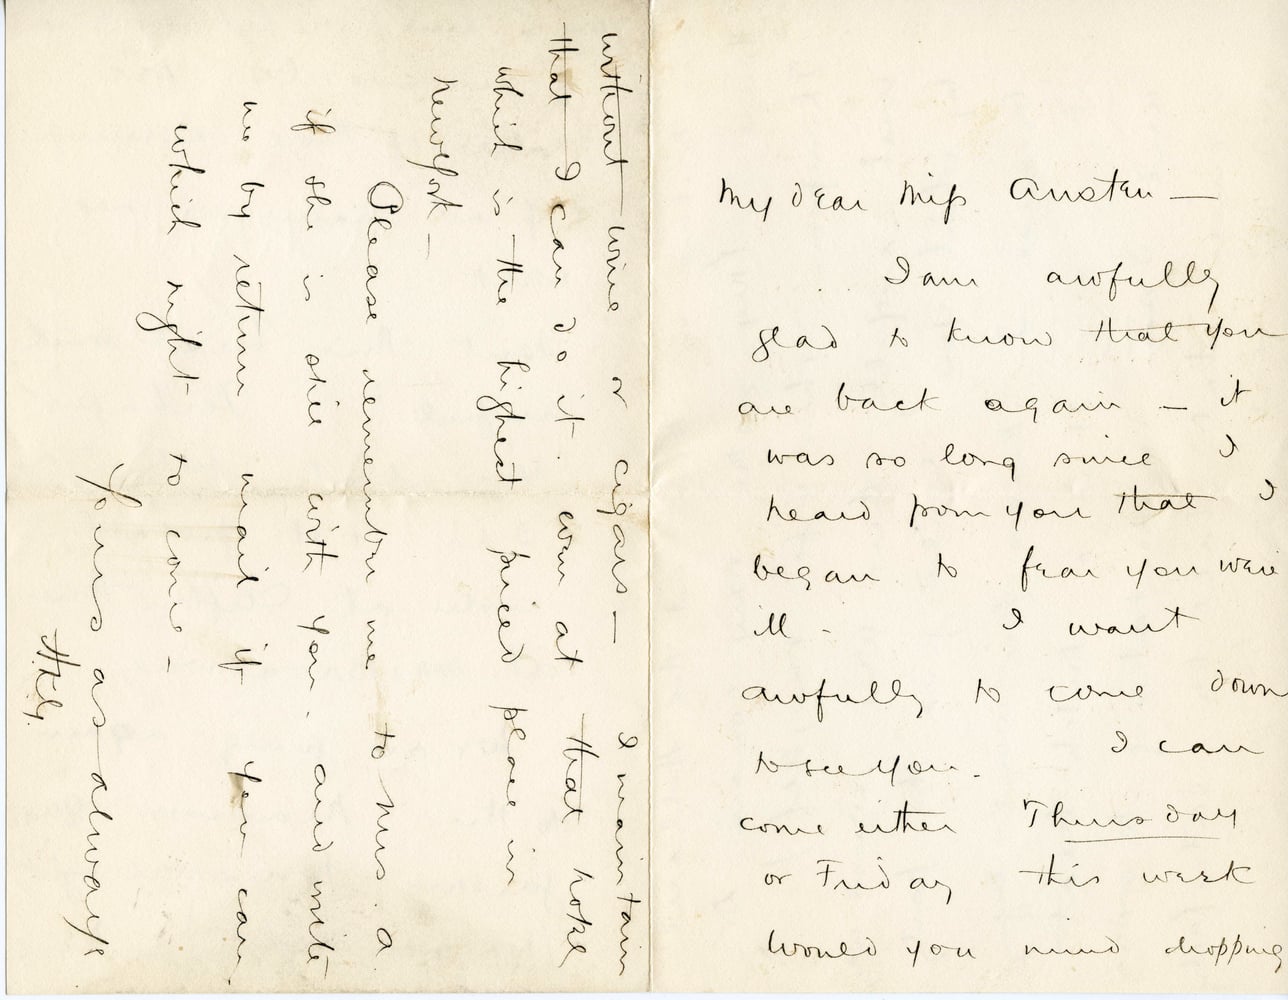 My dear Miss Austen —
I am awfully
glad to know that you
are back again — it
was so long since I
heard from you that I
began to fear you were
ill - I want
awfully to come down
to see you. I can
come either Thursday
or Friday this week
Would you mind dropping
without wine or cigars — I maintain
that I can do it. even at that hotel
which is the highest priced place in
New York —
Please remember me to Mrs. A
if she is still with you. and write
me by return mail if you can
which night to come —
Yours as always